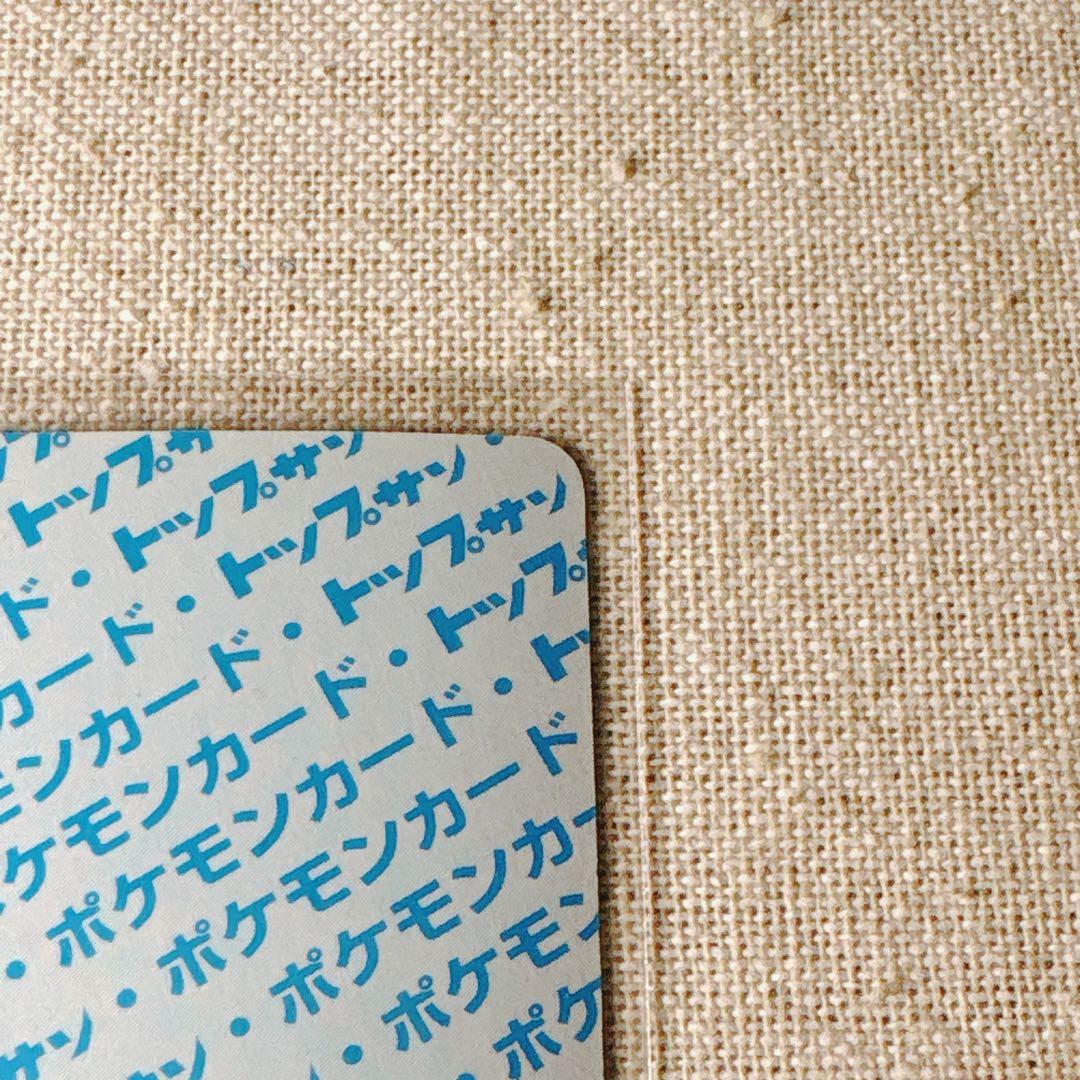 プ
トップサ
ド・トップサン
カード・トップサン・
モンカード・トップサン
ケモンカード・トップ
・ポケモンカード・トッ
サン・ポケモンカード
ン・ポケモンカー
・ポケモン
・ポケ